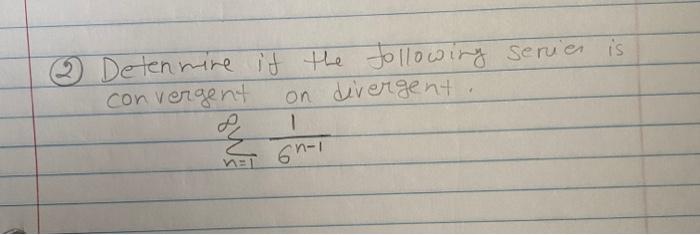 ② Determine if the following series is
convergent or divergent.
∞
∑ 1 / 6^{n-1}
n=1